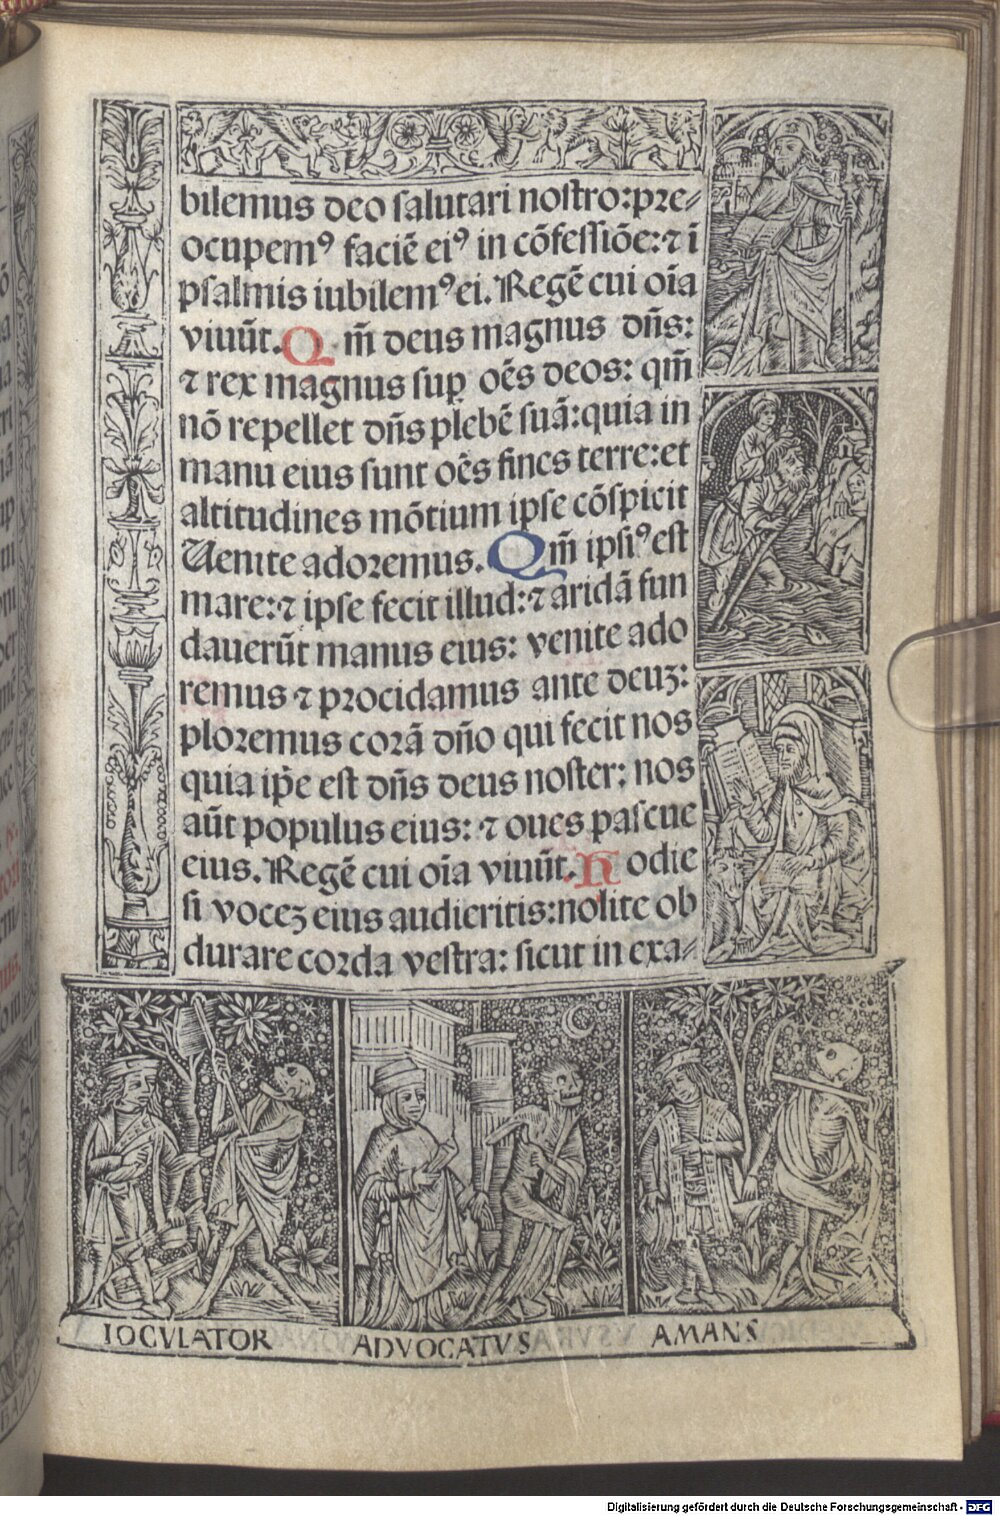 bilemus deo salutari nostro: pre⸗
ocupemꝰ faciē eiꝰ in cōfessiōe: ⁊ ī
psalmis iubilemꝰ ei. Regē cui oīa
viuūt. Qm̄ deus magnus dn̄s:
⁊ rex magnus suꝑ oēs deos: qm̄
nō repellet dn̄s plebē suā: quia in
manu eius sunt oēs fines terre: et
altitudines mōtium ipse cōspicit
Uenite adoremus. Qm̄ ipsiꝰ est
mare: ⁊ ipse fecit illud: ⁊ aridā fun
dauerūt manus eius: venite ado
remus ⁊ procidamus ante deuꝫ:
ploremus corā dn̄o qui fecit nos
quia ip̄e est dn̄s deus noster: nos
aūt populus eius: ⁊ oues pascue
eius. Regē cui oīa viuūt. Hodie
si voceꝫ eius audieritis: nolite ob
durare corda vestra: sicut in exa⸗
IOCVLATOR ADVOCATVS AMANS
Digitalisierung gefördert durch die Deutsche Forschungsgemeinschaft - DFG